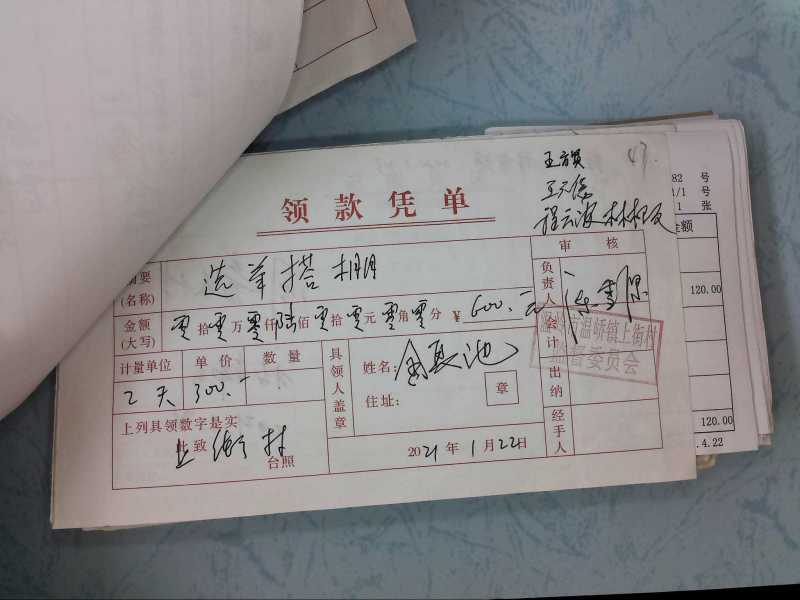 47.
王云海
程云波
领款凭单
审核
摘要
(名称)
选举搭棚
负责人
金额
(大写)
零拾零万零仟陆佰零拾零元零角零分 ¥600.元
会计
计量单位 单价 数量
2天 300.-
具领人盖章
姓名:
住址:
章
出纳
上列具领数字是实
此致
上街村
台照
2021年1月22日
经手人
上街村
监督委员会
82 号
1/1 号
1 张
金额
120.00
120.00
.4.22